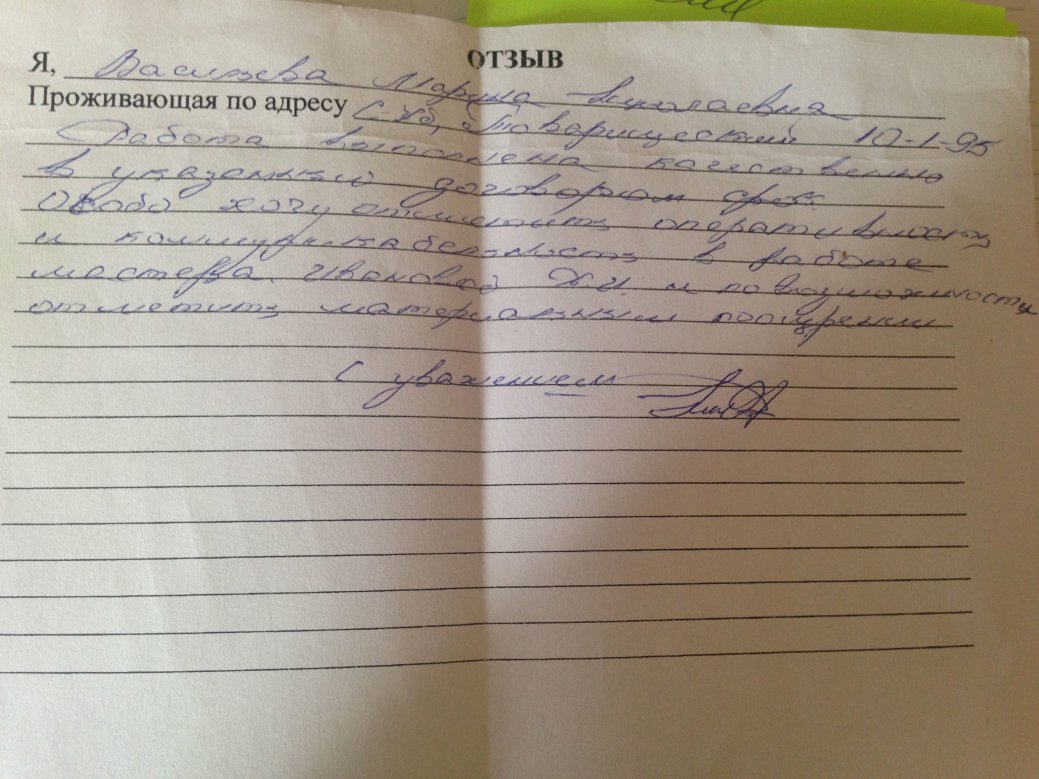 ОТЗЫВ
Я, Васильева Марина Николаевна
Проживающая по адресу С-Пб, Товарищеский 10-1-95
Работа выполнена качественно
в указанный договором срок.
Особо хочу отметить оперативность
и коммуникабельность в работе
мастера Ивановой И. и по возможности
отметить материальным поощрении
С уважением